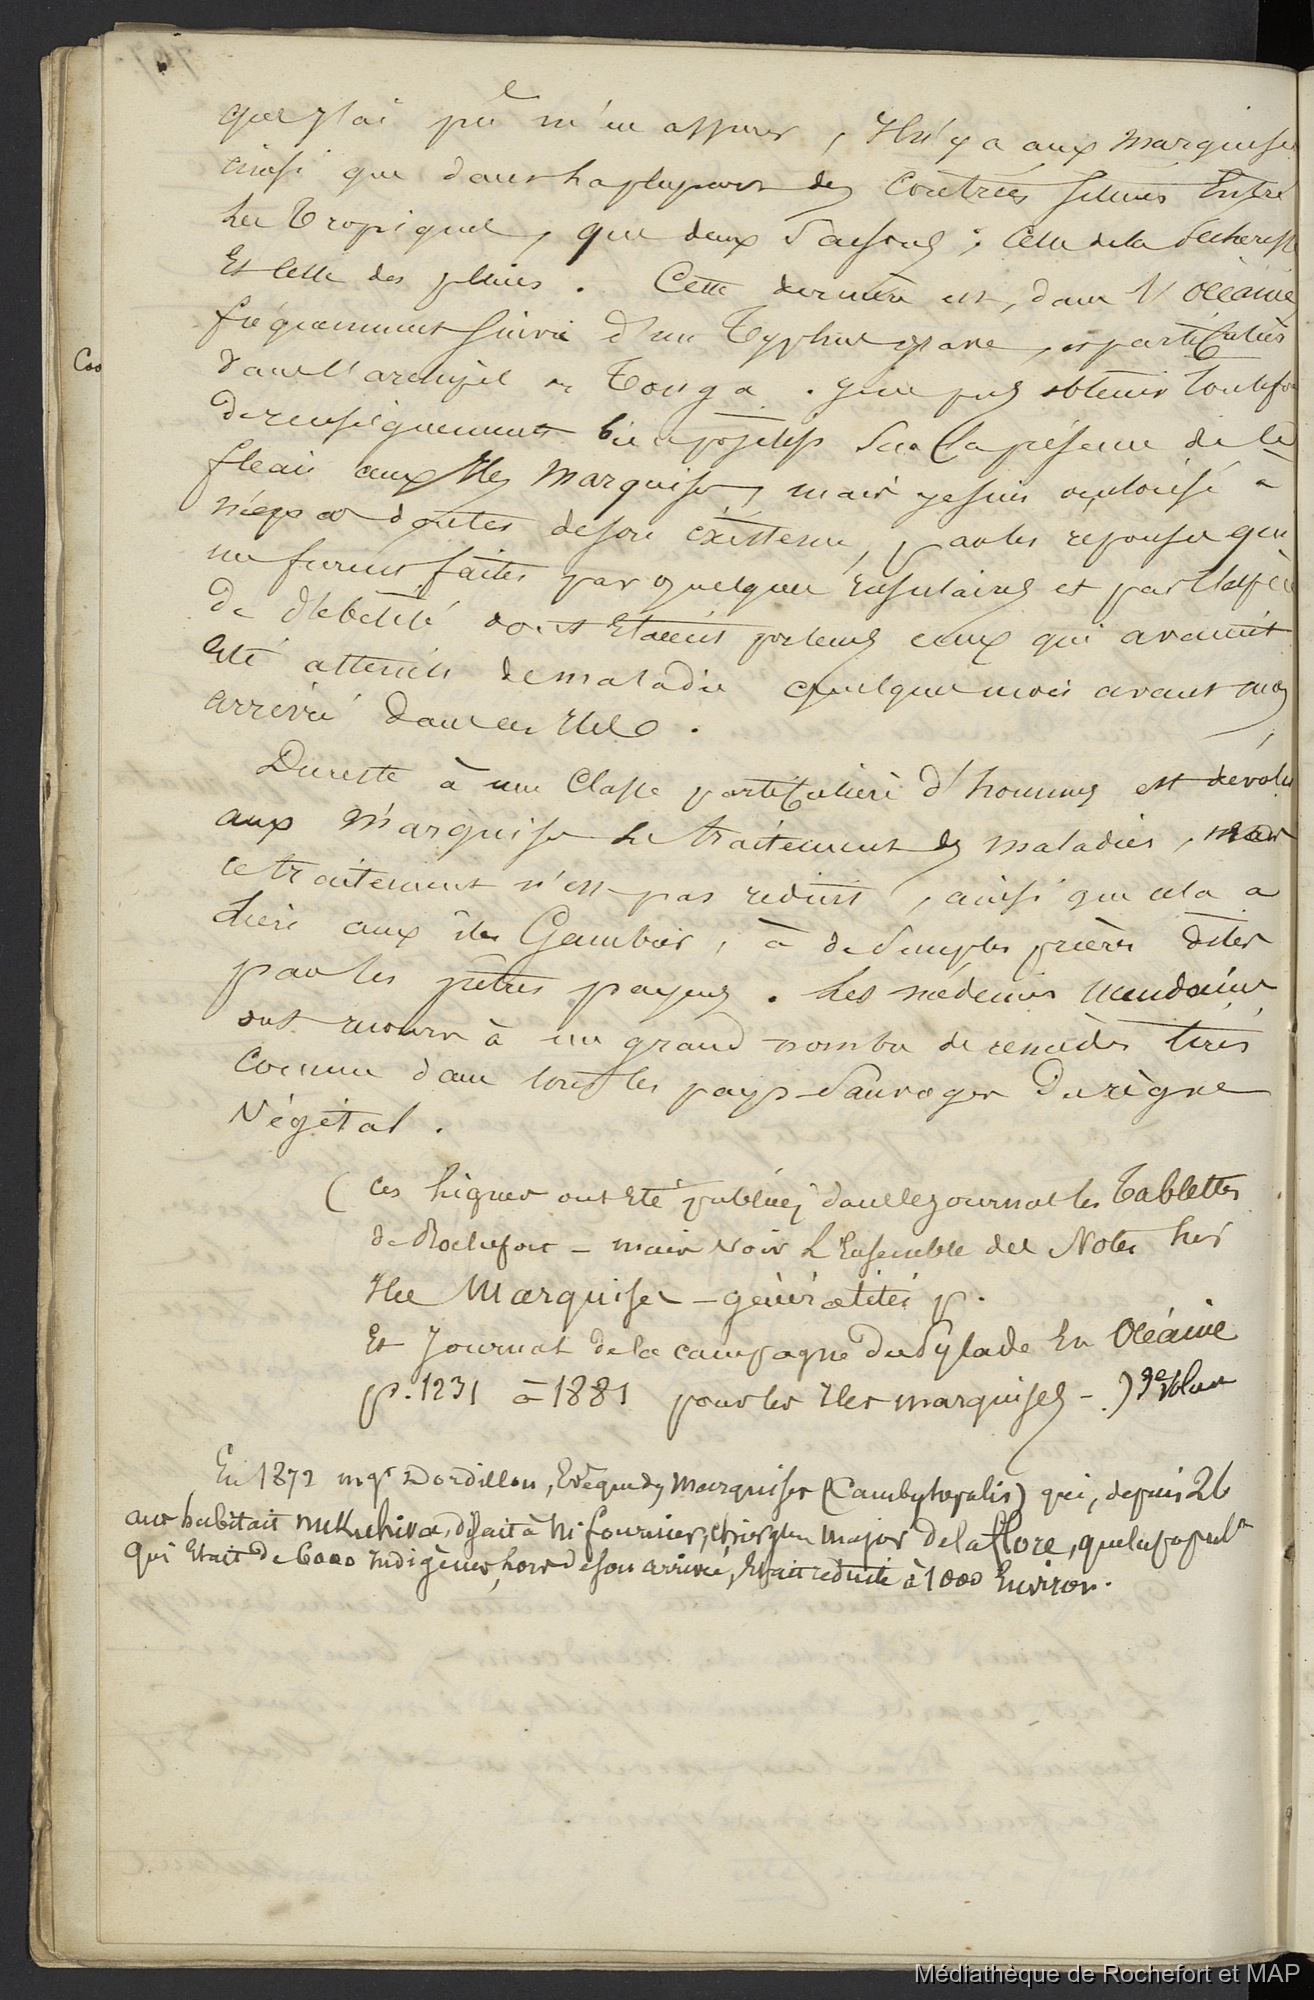 que j'ai pû m'en assurer, Il n'y a aux marquises
ainsi que dans la plupart des Contrées situées Entre
les Tropiques, que deux Saisons ; Celle de la Secheresse
Et Celle des pluies. Cette dernière est, dans l'Océanie
fréquemment suivie d'un Typhus grave, en particulier
dans l'archipel de Tonga. je ne pus obtenir toutefois
de renseignements bien positifs Sur la présence de ce
fleau aux Iles Marquises, mais je suis autorisé à
n'en pas douter de son existence, par les réponses qui
me furent faites par quelques Insulaires et par l'aspect
de débilité dont étaient porteurs ceux qui avaient
été atteints de maladie quelques mois avant mon
arrivée dans ces Iles.
Du reste à une Classe particulière d'hommes est dévolu
aux Marquises le traitement des maladies, mais
ce traitement n'est pas réduit, ainsi que cela a
lieu aux îles Gambier, à de Simples prières dites
par les prêtres payens. Les médecins Mendoains
ont recours à un grand nombre de remèdes tirés
Comme dans tous les pays Sauvages Du règne
Végétal.
( ces lignes ont été publiées dans le journal les Tablettes
de Rochefort - mais voir L'Ensemble des Notes sur
Iles Marquises - généralités p.
Et Journal de la campagne du Pylade En Océanie
p. 1231 à 1881 pour les Iles marquises - .) 3e volume
Coo
En 1872 mgr Dordillon, Evêque des Marquises (Cambysopolis) qui, depuis 26
ans habitait Nukuhiva, disait à Mr fournier, chirurgien major de la flore, que la populon
qui était de 6000 indigènes, lors de son arrivée, était réduite à 1000 Environ.
Médiathèque de Rochefort et MAP